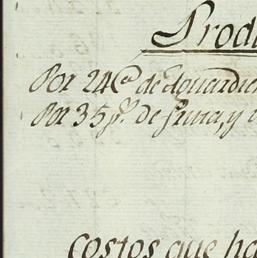 Produ
Por 24 C.ª de Aguardie
Por 35 p.s de fruta, y
costos que ha